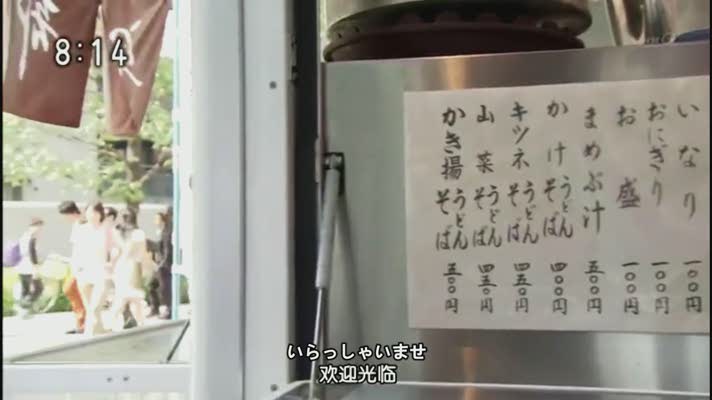 8:14
いなり 一〇〇円
おにぎり 一〇〇円
お盛 一〇〇円
まめぶ汁 五〇〇円
かけ うどん そば 四〇〇円
キツネ うどん そば 四五〇円
山菜 うどん そば 四五〇円
かき揚 うどん そば 五〇〇円
いらっしゃいませ
欢迎光临